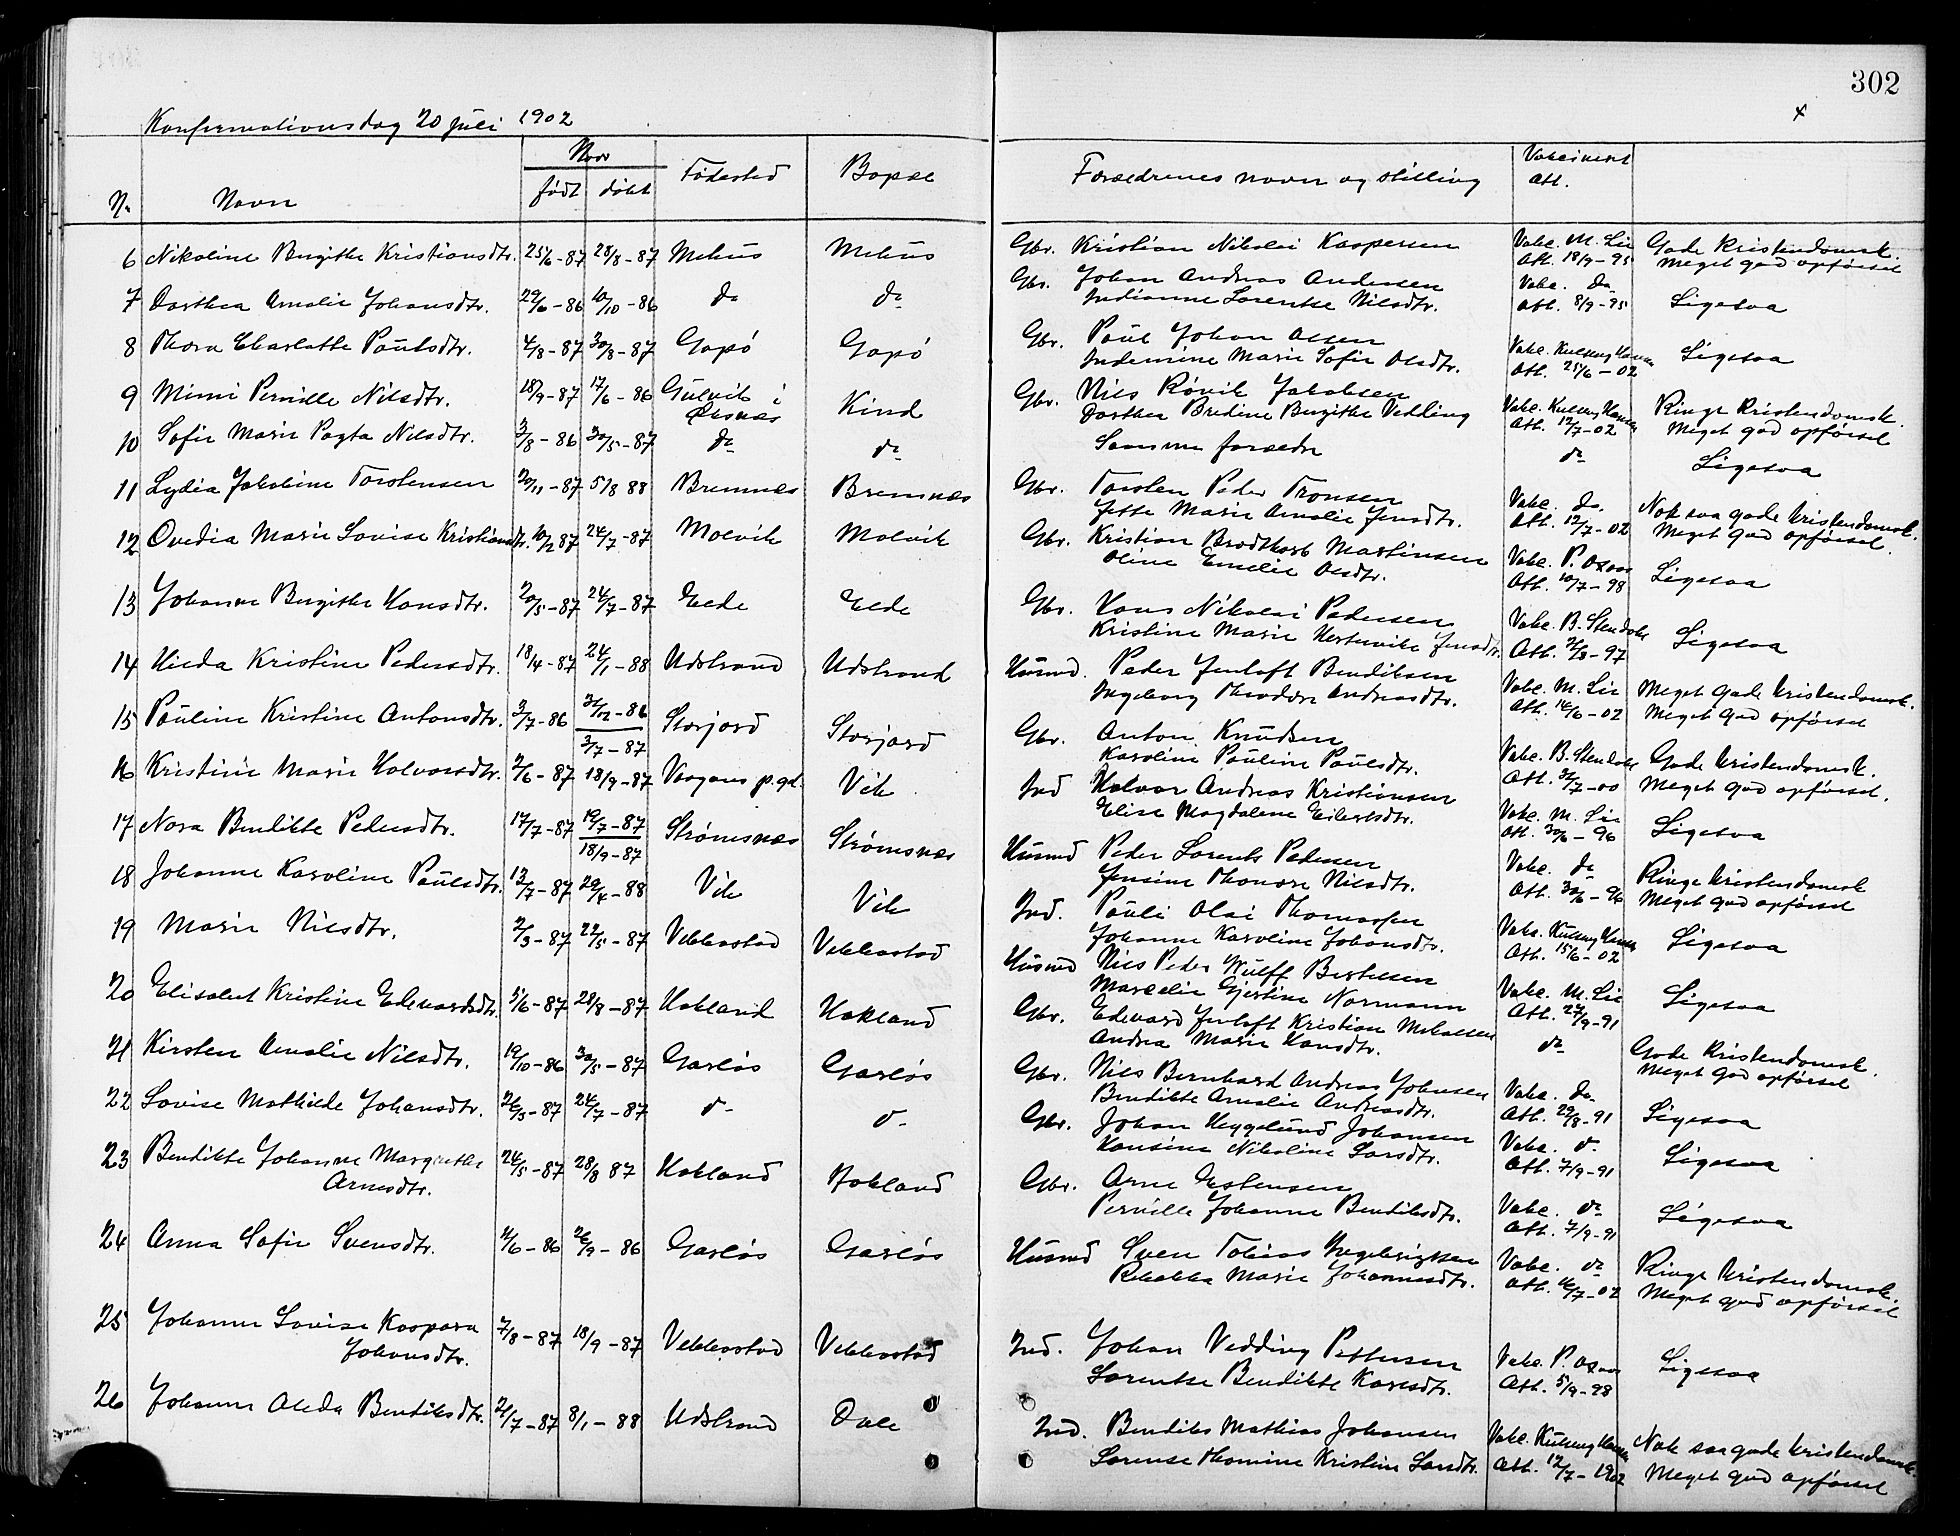 302
Konfirmationsdag 20 juli 1902
Naar
No Navn født døbt Fødested Bopæl Forældrenes navn og stilling Att.
6 Nikoline Birgithe Kristiansdtr. 25/6-87 28/8-87 Mehus Mehus Gbr. Kristian Nikolai Kaspersen Vakc. M. Lie Gode kristendomsk.
Att. 18/9-95 Meget god opførsel
7 Dorthea Amalie Johansdtr. 29/6-86 10/10-86 do do Gbr. Johan Andreas Andersen Vakc. do
Indianne Lorentse Nilsdtr. Att. 8/9-95 Ligesaa
8 Thora Charlotte Paulsdtr. 4/8-87 30/8-87 Gapø Gapø Gbr. Paul Johan Olsen
Indemine Marie Sofie Olsdtr. Att. 25/6-02 Ligesaa
9 Mimi Pernille Nilsdtr. 18/9-87 17/6-86 Gulvik i Øksnes Kind Gbr. Nils Røvik Jakobsen Ringe kristendomsk.
Dorthea Bredine Birgithe Vedding Att. 12/7-02 Meget god opførsel
10 Sofie Marie Pagta Nilsdtr. 3/8-86 30/5-87 do do Samme forældre do Ligesaa
11 Lydia Jakobine Torstensen 20/11-87 5/8 88 Bremnes Bremnes Gbr. Torsten Peder Tronsen Vakc. do. Nok saa gode kristendomsk.
Jette Marie Amalie Jensdtr. Att. 12/7-02 Meget god opførsel.
12 Ovedia Marie Lovise Kristiansdtr. 10/2 87 24/7-87 Molvik Molvik Gbr. Kristian Brodtkorb Martinsen Vakc. P. Oxaas
Oline Emelie Olsdtr. Att. 10/7-98 Ligesaa
13 Johanne Birgithe Hansdtr. 20/5-87 24/7-87 Elde Elde Gbr. Hans Nikolai Pedersen Vakc. B. Stendahl
Kristine Marie Jensdtr. Ligesaa
14 Hilda Kristine Pedersdtr. 18/4-87 24/1-88 Udstrand Udstrand Husmd. Peder Jentoft Bendiksen Vakc. M. Lie Meget gode kristendomsk.
Ingeborg Theodora Andreasdtr. Att. 14/6-02 Meget god opførsel
15 Pauline Kristine Antonsdtr. 3/7-86 31/12-86 Storjord Storjord Gbr. Anton Knudsen Vakc. B. Stendahl Gode kristendomsk.
3/7-87 Karoline Pauline Paulsdtr. Meget god opførsel.
16 Kristine Marie Halvorsdtr. 2/6-87 18/9-87 Vaagans p.gd. Vik Ind Halvor Andreas Kristiansen Vakc. M. Lie
Elise Magdalene Eilertsdtr. Att. 30/6-96 Ligesaa
17 Nora Bendikte Pedersdtr. 17/7-87 19/7-87 Strømsnes Strømsnes Husmd Peder Lorents Pedersen Vakc. do Ringe kristendomsk
18/9-87 Jensine Thomsra Nilsdtr. Att. 30/6-96 Meget god opførsel
18 Johanne Karoline Paulsdtr. 13/7-87 29/4-88 Vik Vik Ind. Pauli Olai Thomassen
Johanne Karoline Johansdtr. Att. 15/6-02 Ligesaa
19 Marie Nilsdtr. 2/3-87 22/5-87 Vebbostad Vebbostad Husmd Nils Peder Wulff Bertelsen Vakc. M. Lie
Marselie Gjertine Normann Att. 27/9-91 Ligesaa
20 Elisabet Kristine Edevardsdtr. 5/6-87 28/8-87 Hokland Hokland Gbr. Edevard Jentoft Kristian Mikalsen do
Andrea Marie Hansdtr. Gode kristendomsk.
21 Kirsten Amalie Nilsdtr. 19/10-86 30/5-87 Garløs Garløs Gbr. Nils Bernhard Andreas Johnsen Vakc. do. Meget god opførsel
Bendikte Amalie Andreasdtr. Att. 29/8-91 Ligesaa
22 Lovise Mathilde Johansdtr. 26/3-87 24/7-87 do do Gbr. Johan Heggelund Johansen Vakc. do
Hansine Nikoline Larsdtr. Att. 7/9-91 Ligesaa
23 Bendikte Johanne Margrethe 24/5-87 28/8 87 Hokland Hokland Gbr. Arne Estensen Vakc. do
Arnesdtr. Pernille Johanne Bendiksdtr. Att. 7/9-91 Ligesaa
24 Anna Sofie Svensdtr. 11/6-86 26/9-86 Garløs Garløs Husmd Sven Tobias Ingebrigtsen Vakc. do Ringe kristendomsk.
Rebekka Marie Johannesdtr. Meget god opførsel
25 Johanne Lovise Kaspara 7/8-87 18/9-87 Vebbostad Vebbostad Ind. Johan Vedding Pettersen Vakc. P. Oxaas
Johansdtr. Lorentse Bendikte Karlsdtr. Att. 5/9-98 Ligesaa
26 Johanne Alida Bendiksdtr. 21/7-87 8/1-88 Udstrand Dale Ind. Bendiks Mathias Johansen Nok saa gode kristendomsk.
Lorense Thomine Kristine Larsdtr. Att. 12/7-1902 Meget god opførsel